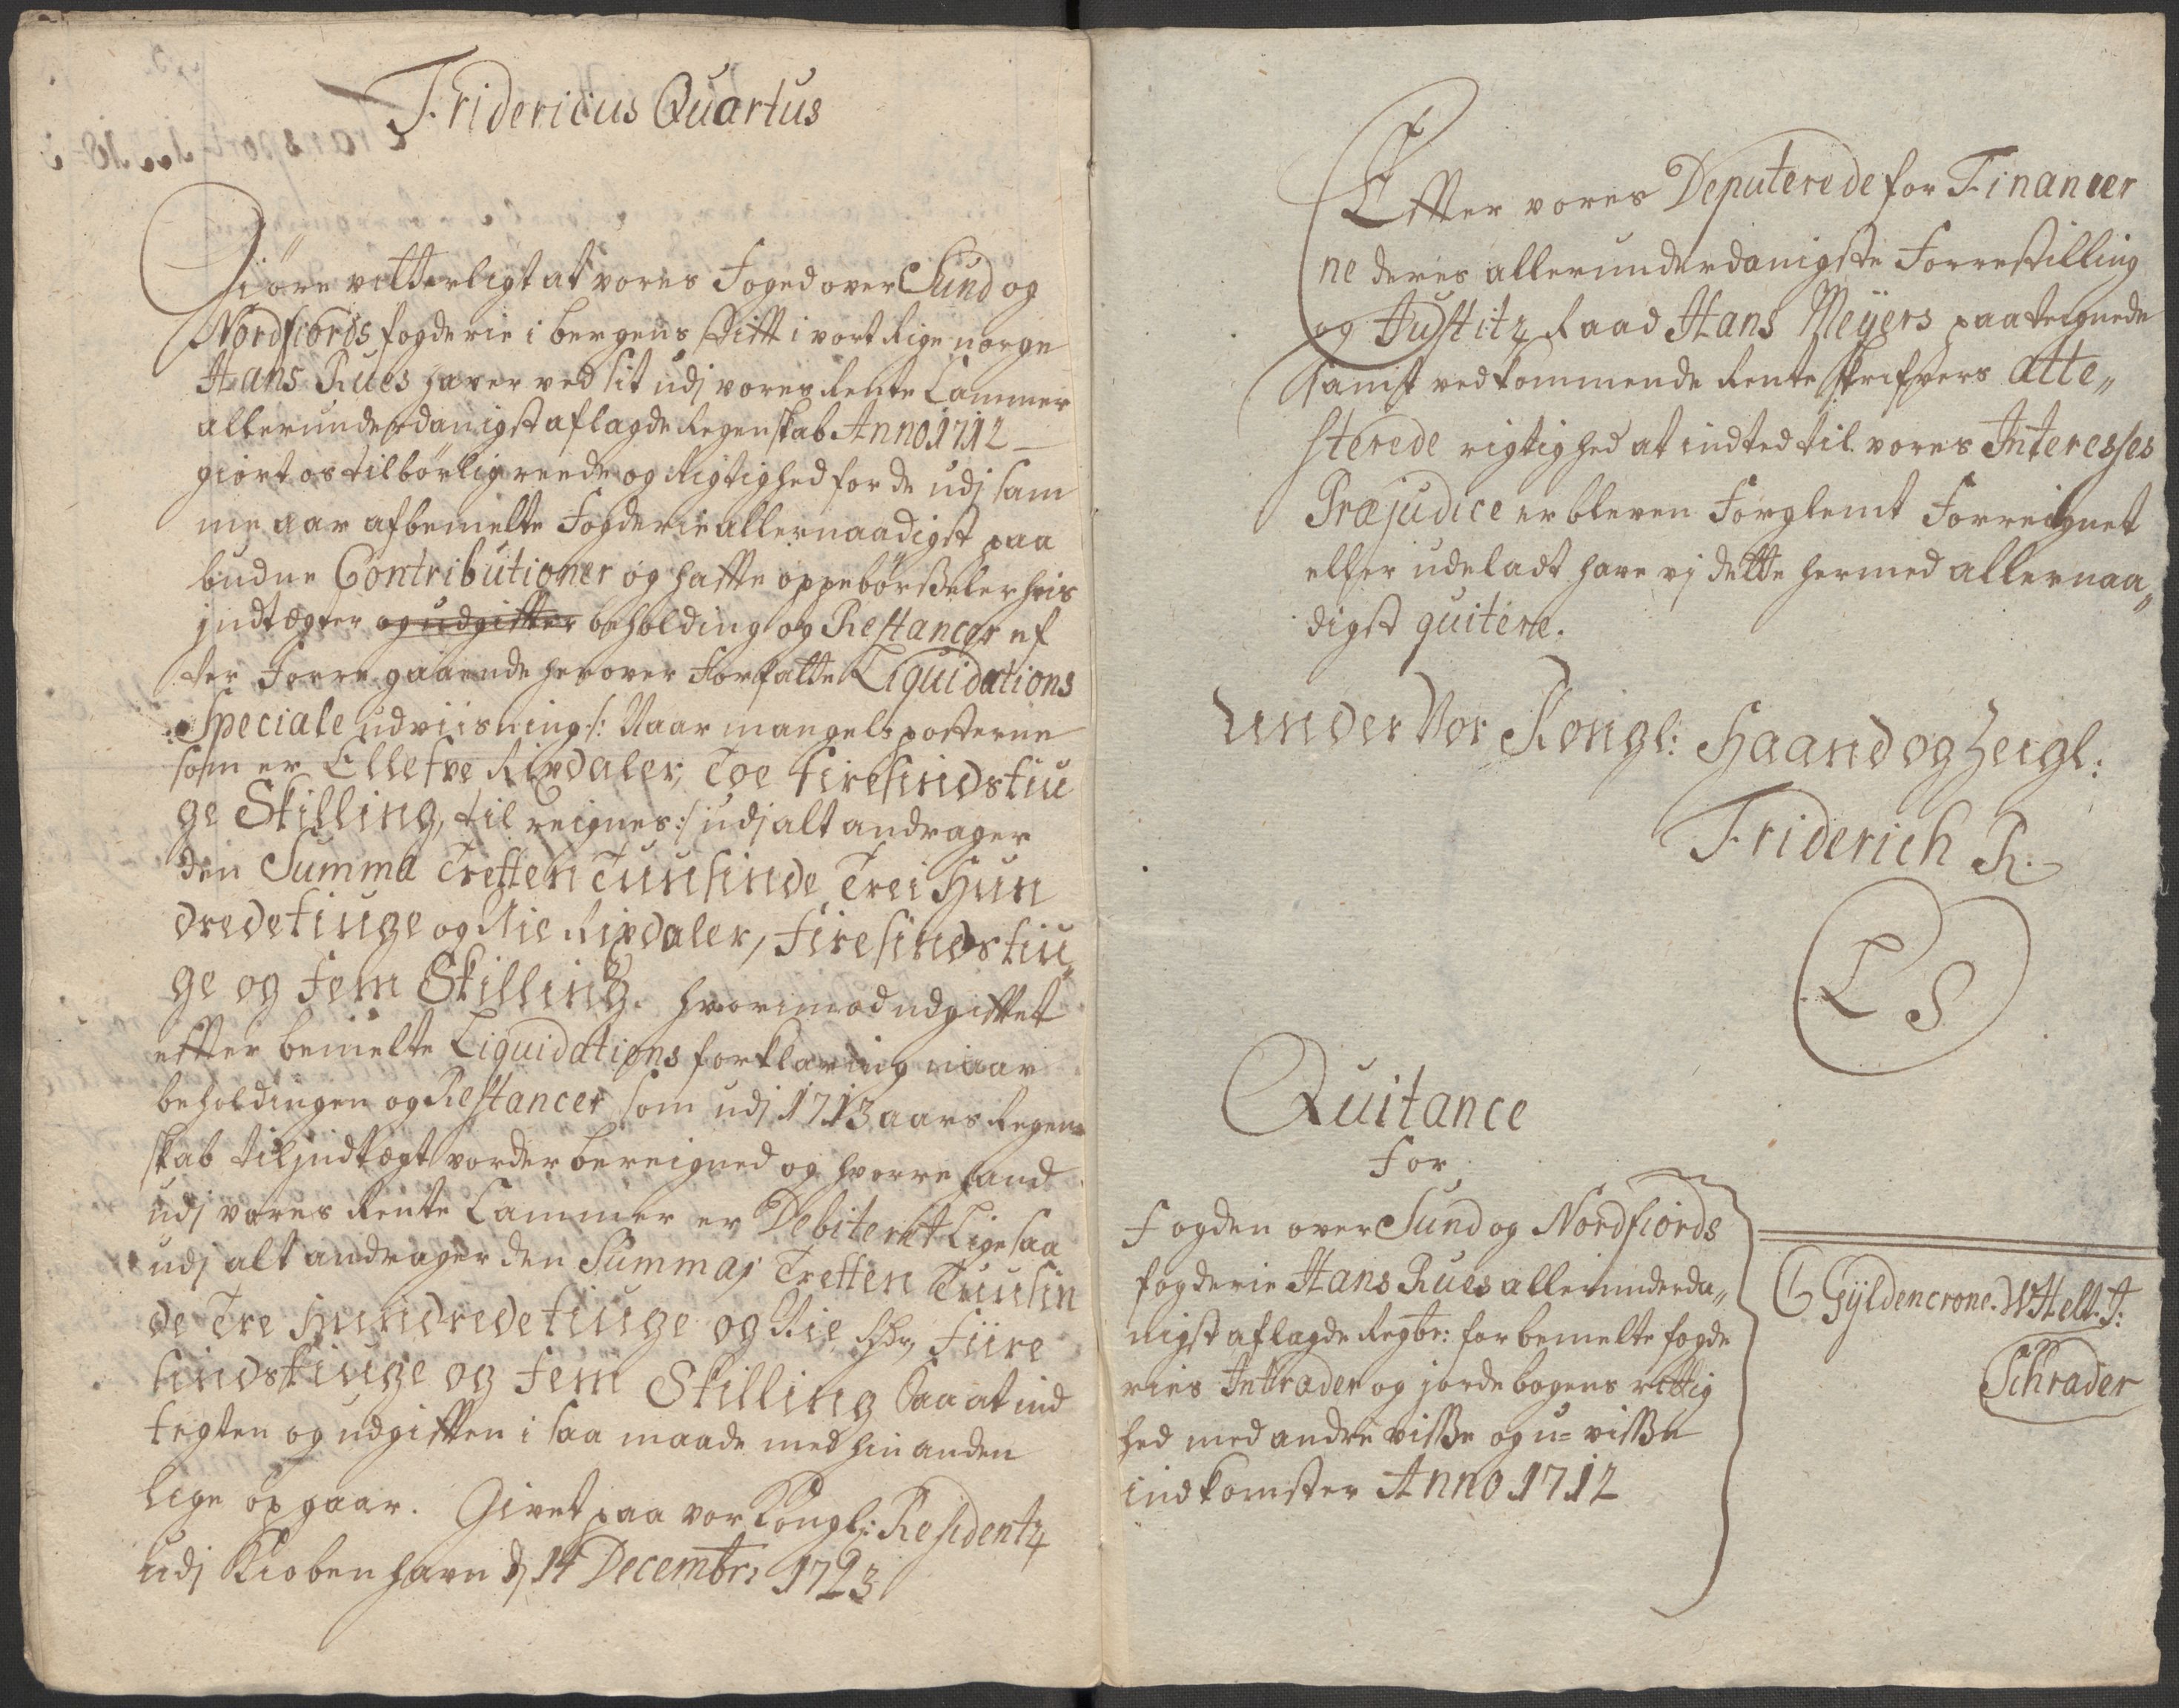 Fridericus Quartus
Giöre vitterligt at vores Foged over Sund og
Nordfiords fogderie i bergens Stift i vort Rige norge
Hans Rues haver ved sit udj vores Rente Cammer
allerunderdanigst aflagde Regenskab Anno 1712
giort os tilbörlig reede og Rigtighed for de udj sam
me aar af bemelte Fogderie allernaadigst paa
budne Contributioner og hafte oppebörßeler hvis
jndtægter og udgifter beholding og Restancer ef
ter Forregaaende herover Forfatte Liquidations
Speciale udviisning /: Naar mangels posterne
som er Ellefve Rixdaler, Toe Firesindstiu
ge Skilling, til reignes :/ udj alt andrager
den Summa Tretten Tuusinde Trei Hun
drede tiuge og Nie Rixdaler, Firesindstiu„
ge og Fem Skilling. Hvorimod udgiftet
efter bemelte Liquidations forklaring naar
beholdingen og Restancer som udj 1713 aars Regen=
skab til jndtægt vorder bereigned og hvorre hand
udj vores Rente Cammer er Debiteret Lige saa
udj alt andrager den Summa, Tretten Tuusin
de Tre Hundrede tiuge og Nie Rdr, Fiire
sindstiuge og Fem Skilling Saa at ind
tegten og udgiften i saa maade med hin anden
lige op gaar. Givet paa vor Kongl: Residentz
udj Kiobenhavn dj 14 Decembr: 1723
Efter vores Deputerede for Financer
ne deres allerunderdanigste Forrestilling
og Justitz Raad Hans Meÿers paategnede
samt vedkommende Rente skrifvers atte„
sterede rigtighed at indted til vores Interesses
Præjudice er bleven Forglemt Forreignet
eller udeladt have vj dette hermed allernaa„
digst quitere.
Under Vor Kongl: Haand og Zeigl:
Friderich R.
L S
Quitance
For
Fogden over Sund og Nordfiords
fogderie Hans Rues allerunderda„
nigst aflagde Regbr: for bemelte fogde
ries Intrader og jordebogens rettig
hed med andre visse og u= visse
indkomster Anno 1712
C Gÿldencrone. W Helt. J:
Schrader